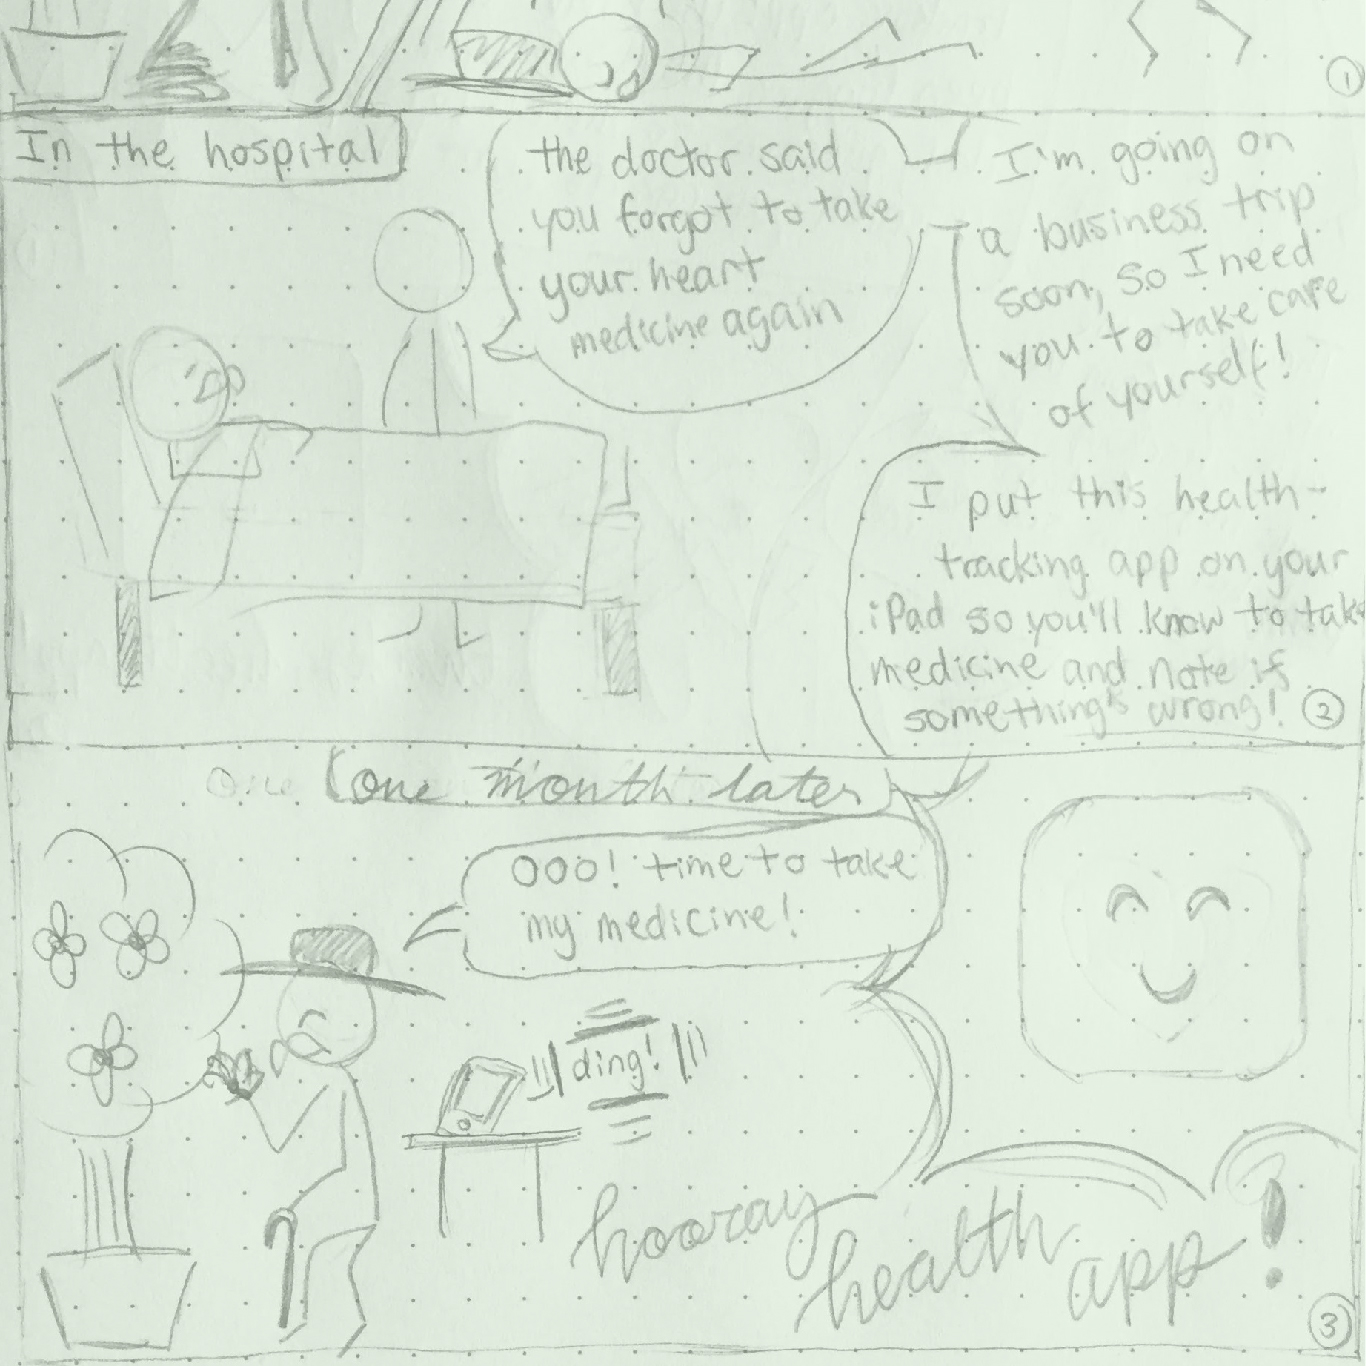 1
In the hospital
the doctor said
you forgot to take
your heart
medicine again
I'm going on
a business trip
soon, so I need
you to take care
of yourself!
I put this health-
tracking app on your
iPad so you'll know to take
medicine and note if
something's wrong!
2
one
one month later
OOO! time to take
my medicine!
ding!
hooray
health
app!
3